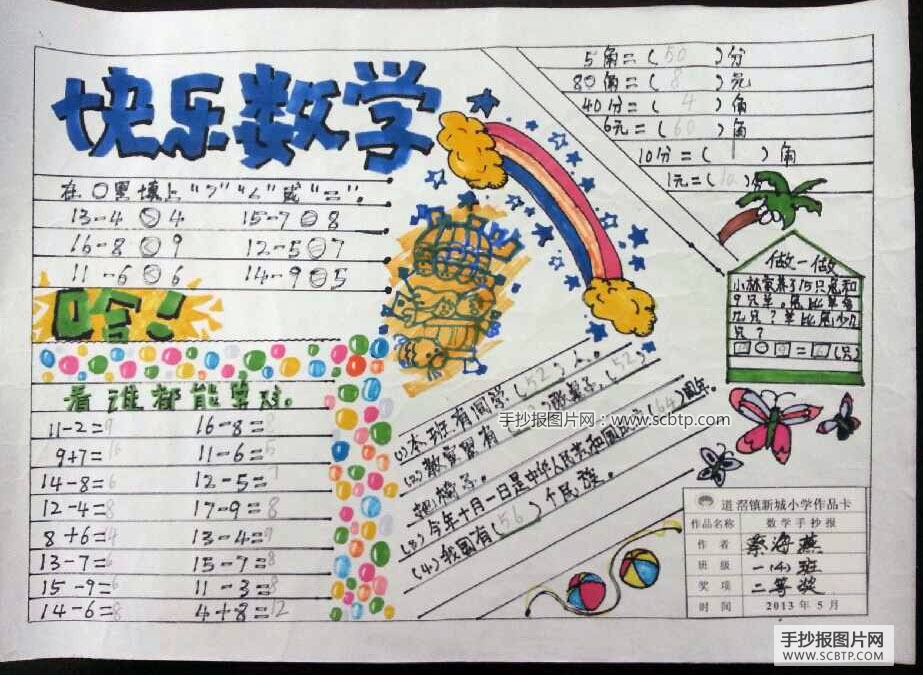 快乐数学
在○里填上">""<"或"="。
13-4○4 15-7○8
16-8○9 12-5○7
11-6○6 14-9○5
哈!
看谁都能算对。
11-2=9 16-8=8
9+7= 11-6=5
14-8=6 12-5=7
12-4=8 17-9=8
8+6=4 13-4=9
13-7=6 15-7=8
15-9=6 11-3=8
14-6=8 4+8=12
5角=(50)分
80角=(8)元
40分=(4)角
6元=(60)角
10分=(1)角
1元=(10)
做一做
小林家养了15只兔和
9只羊。兔比羊多
几只?羊比兔少几
只?
□○□=□(只)
(1)本班有同学(52)人。
(2)教室里有( )张桌子,(52)
把椅子。
(3)今年十月一日是中华人民共和国的(64)周年。
(4)我国有(56)个民族。
手抄报图片网 www.scbtp.com
道滘镇新城小学作品卡
作品名称 数学手抄报
作者 蔡海燕
班级 一(4)班
奖项 二等奖
时间 2013年5月
手抄报图片网
WWW.SCBTP.COM